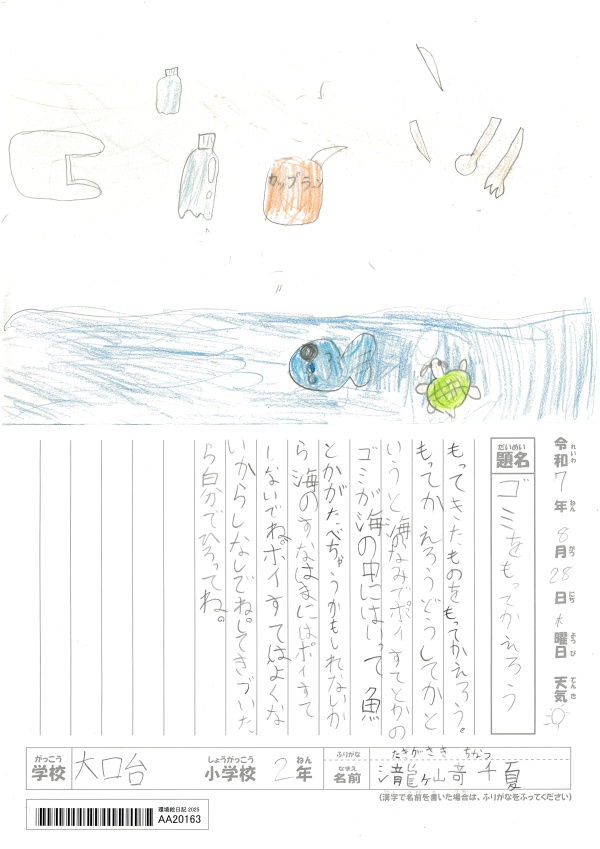 カップラーメン
令和7年8月28日木曜日 天気
れいわ ねん がつ にち ようび てんき
だいめい
題名 ゴミをもってかえろう
もってきたものをもってかえろう。
もってかえろうどうしてかと
いうと海のなみでポイすてとかの
ゴミが海の中にはいって魚
とかがたべちゃうかもしれないか
ら海のすなはまにはポイすて
しないでね。ポイすてはよくな
いからしなしでね。してきづいた
ら自分でひろってね。
がっこう しょうがっこう ねん
学校 大口台 小学校 2年
ふりがな たきがさき ちなつ
なまえ
名前 瀧ヶ崎 千夏
(漢字で名前を書いた場合は、ふりがなをふってください)
環境絵日記 2025
AA20163